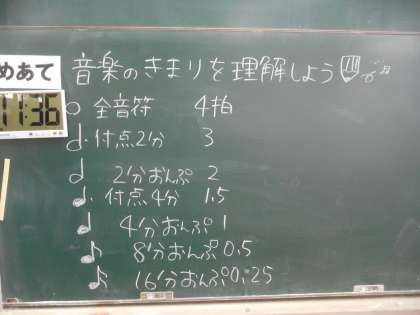 めあて 音楽のきまりを理解しよう
11:36
全音符 4拍
付点2分 3
2分おんぷ 2
付点4分 1.5
4分おんぷ 1
8分おんぷ 0.5
16分おんぷ 0.25